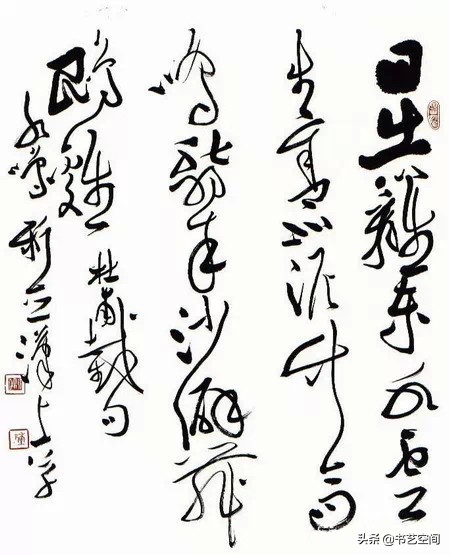 日出籬東水雲
生舍北泥竹高
鳴翡翠沙僻舞
鵾雞 杜甫截句
漢上
头条 @书艺空间